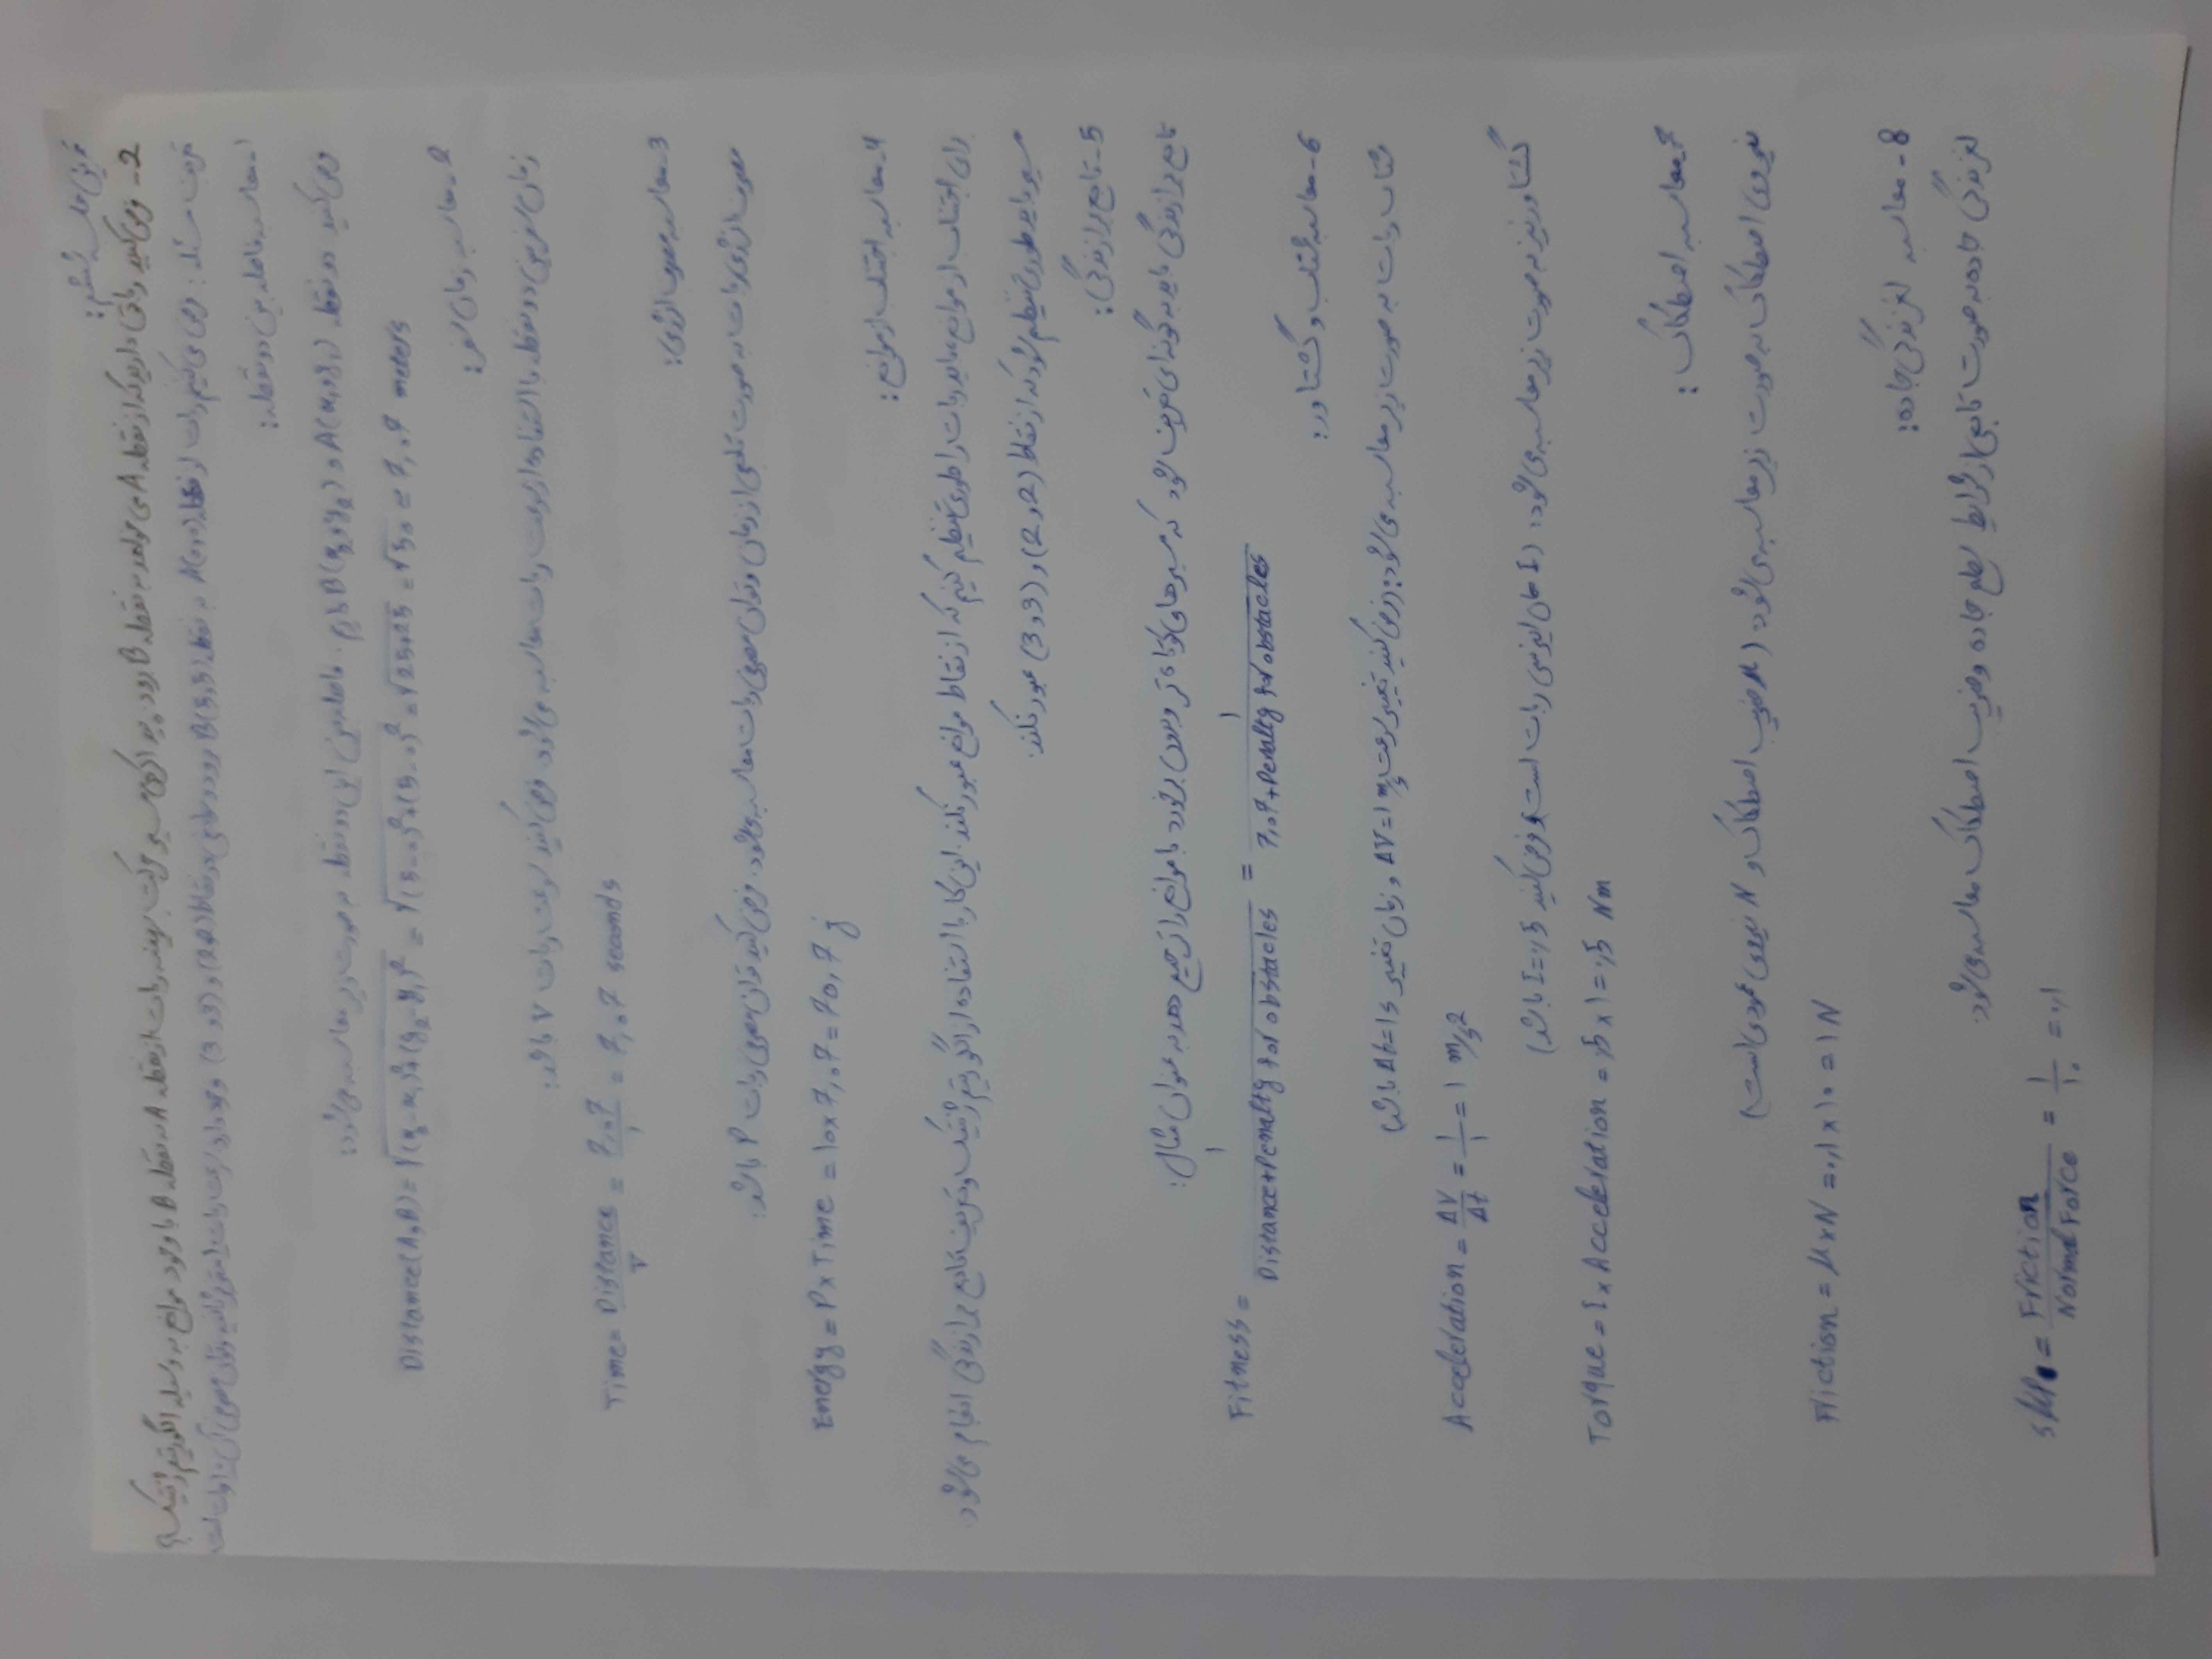 تمرین جلسه ششم:
2- فرض کنید رباتی دارید که از نقطه A می خواهد به نقطه B رود. پیدا کردن مسیر حرکت بهینه ربات از نقطه A به نقطه B با وجود موانع به وسیله الگوریتم ژنتیک؟
تعریف مسئله: فرض می کنیم ربات از نقطه A(0,0) به نقطه B(5,5) برود و موانعی در نقاط (2,2) و (3,3) وجود دارد. سرعت ربات 1 متر بر ثانیه و توان مصرفی آن 10 وات است
1- محاسبه فاصله بین دو نقطه:
فرض کنید دو نقطه A(x₁,y₁) و B(x₂,y₂) داریم. فاصله بین این دو نقطه به صورت زیر محاسبه می شود:
Distance(A,B)= √(x₂-x₁)²+(y₂-y₁)² = √(5-0)²+(5-0)² = √25+25 = √50 ≃ 7,07 meters
2- محاسبه زمان سفر:
زمان سفر بین دو نقطه با استفاده از سرعت ربات محاسبه می شود. فرض کنید سرعت ربات V باشد:
Time= Distance/V = 7,07/1 = 7,07 seconds
3- محاسبه مصرف انرژی:
مصرف انرژی ربات به صورت تابعی از زمان و توان مصرفی ربات محاسبه می شود. فرض کنید توان مصرفی ربات P باشد:
Energy = P×Time = 10×7,07=70,7 j
4- محاسبه اجتناب از موانع:
برای اجتناب از موانع، باید ربات را طوری تنظیم کنیم که از نقاط موانع عبور نکند. این کار با استفاده از الگوریتم ژنتیک و تعریف تابع برازندگی انجام می شود.
مسیر باید طوری تنظیم شود که از نقاط (2,2) و (3,3) عبور نکند.
5- تابع برازندگی:
تابع برازندگی باید به گونه ای تعریف شود که مسیرهای کوتاه تر و بدون برخورد با موانع را ترجیح دهد به عنوان مثال:
Fitness = 1/Distance+Penalty for obstacles = 1/7,07+Penalty for obstacles
6- محاسبه شتاب و گشتاور:
شتاب ربات به صورت زیر محاسبه می شود: (فرض کنید تغییر سرعت ΔV=1 m/s و زمان تغییر Δt=1s باشد)
Acceleration = ΔV/Δt = 1/1 = 1 m/s2
گشتاور نیز به صورت زیر محاسبه می شود: (I ممان اینرسی ربات است و فرض کنید I=0,5 باشد)
Torque = I × Acceleration = 0,5 × 1 = 0,5 Nm
7- محاسبه اصطکاک:
نیروی اصطکاک به صورت زیر محاسبه می شود: (μ ضریب اصطکاک و N نیروی عمودی است)
Friction = μ×N = 0,1×10 = 1N
8- محاسبه لغزندگی جاده:
لغزندگی جاده به صورت تابعی از شرایط سطح جاده و ضریب اصطکاک محاسبه می شود.
= Friction/Normal Force = 1/10 = 0,1